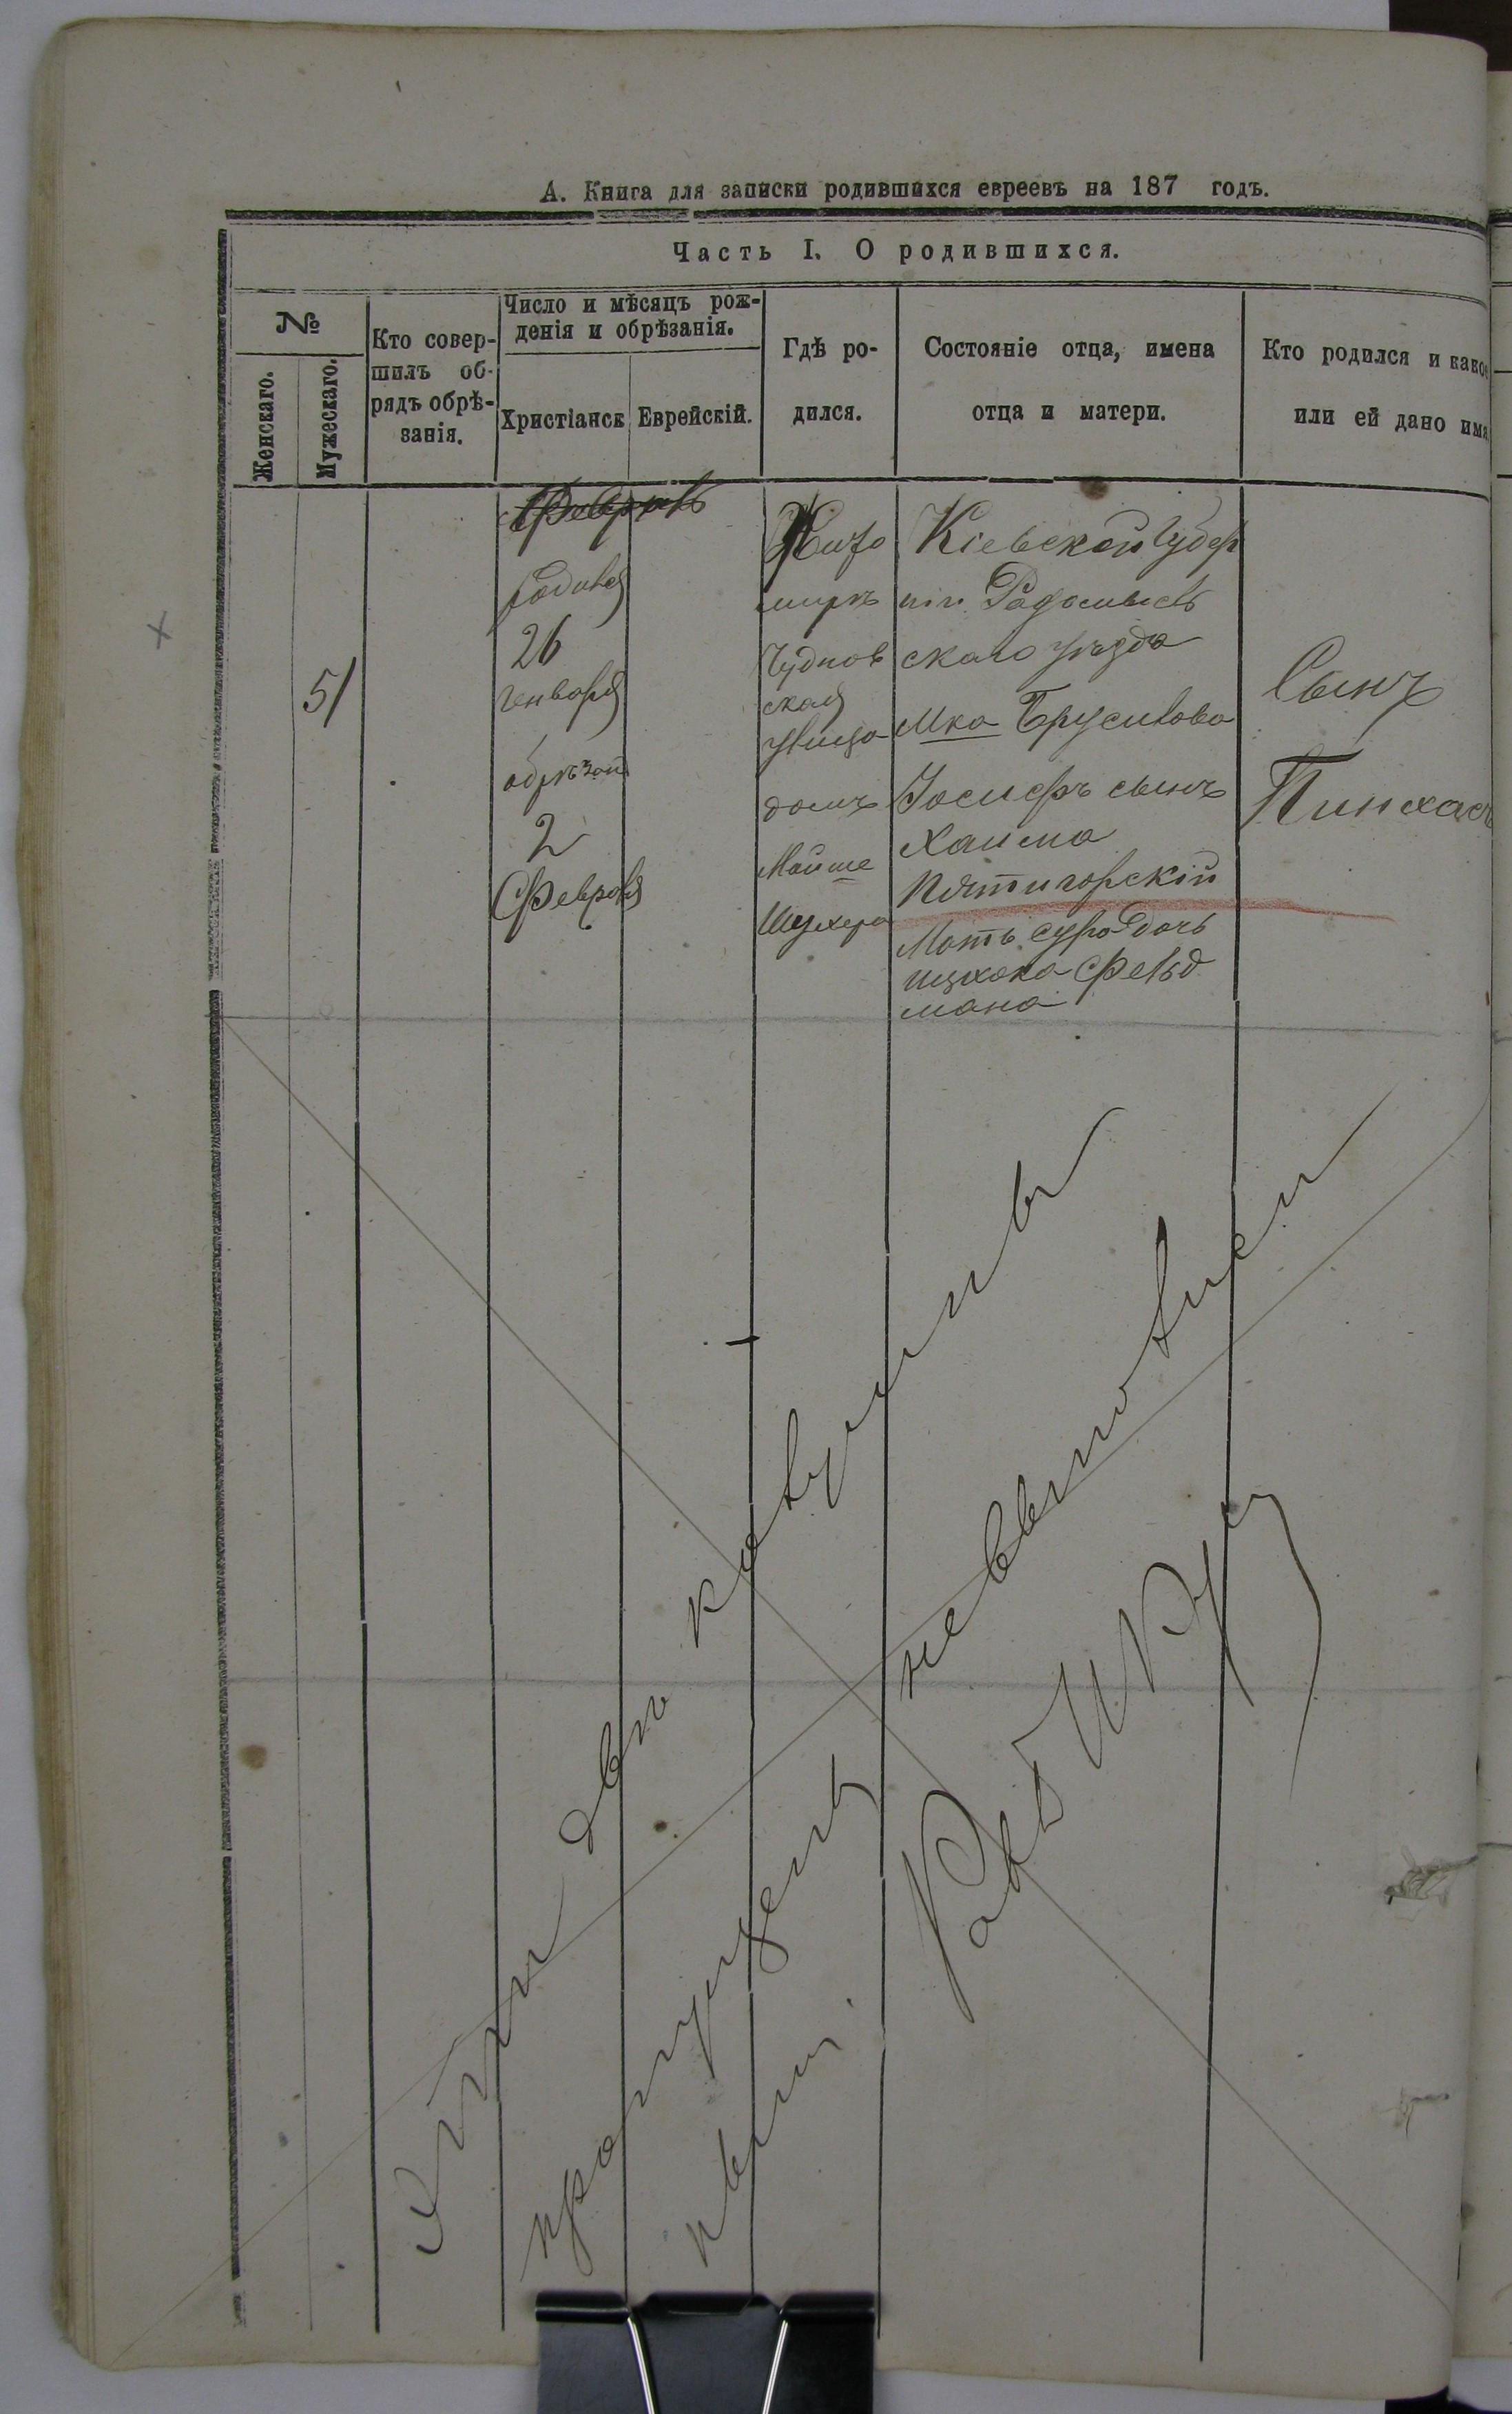 А. Книга для записки родившихся евреевъ на 187 годъ.
Часть I. О родившихся.
№
Женскаго.
Мужескаго.
Кто совер-
шилъ об-
рядъ обрѣ-
занія.
Число и мѣсяцъ рож-
денія и обрѣзанія.
Христіанск
Еврейскій.
Гдѣ ро-
дился.
Состояніе отца, имена
отца и матери.
Кто родился и какое
или ей дано имя
51
родился
26
генваря
обрѣзан
2
Февраля
Жито
миръ
Чуднов
ская
улица
домъ
Мойше
Шухера
Кіевской Губер
ніи Радомысль
скаго уѣзда
Мка Брусилова
Іосифъ сынъ
Хаима
Пятигорскій
Мать сура дочь
ицхока Фельд
мана
Сынъ
Пинхасъ
Эти двѣ колумны
пропущены не вписаны